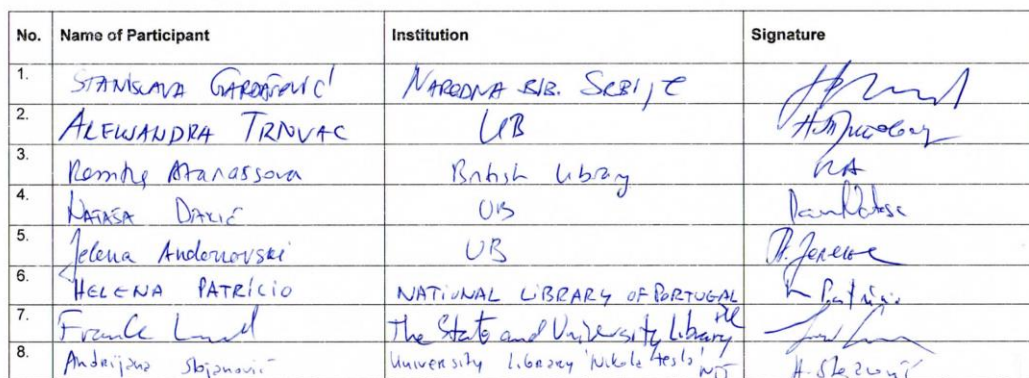 No. Name of Participant Institution Signature
1. STANISLAVA GARDAŠEVIĆ NARODNA BIB. SRBIJE
2. ALEKSANDRA TRNVAC UB
3. Rossitza Atanassova British Library RA
4. NATAŠA DAKIĆ UB
5. Jelena Andonovski UB
6. HELENA PATRÍCIO NATIONAL LIBRARY OF PORTUGAL
7. The State and University Library
8. Andrijana Stojanović University Library 'Nikola Tesla'